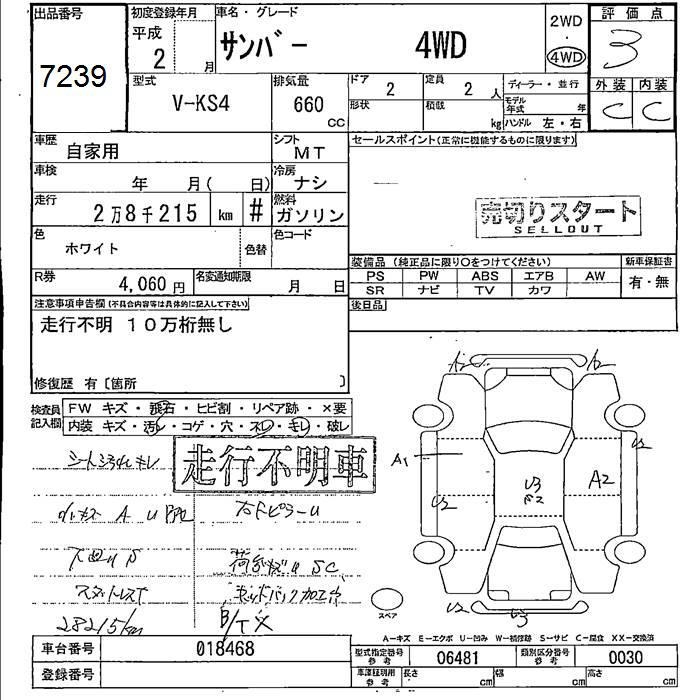 出品番号 初度登録年月 車名・グレード 2WD 評価点
7239 平成 2 月 サンバー 4WD 4WD 3
型式 排気量 ドア 2 定員 2 人 ディーラー・並行 外装 内装
V-KS4 660 CC 形状 積載 kg モデル年式 年 C C
ハンドル 左・右
車歴 自家用 シフト MT セールスポイント(正常に機能するものに限ります)
車検 年 月( 日) 冷房 ナシ
走行 2万8千215 km # 燃料 ガソリン 売切りスタート
SELLOUT
色 ホワイト 色替 色コード
装備品 (純正品に限り○をつけてください) 新車保証書
R券 4,060円 名変通知期限 月 日 PS PW ABS エアB AW 有・無
SR ナビ TV カワ
注意事項申告欄(不具合内容等は具体的に記入して下さい) 後日品
走行不明 10万桁無し
修復歴 有〔箇所 〕
検査員記入欄 FW キズ・飛石・ヒビ割・リペア跡・×要
内装 キズ・汚レ・コゲ・穴・スレ・キレ・破レ
走行不明車
A2 A2
A1 U2
U2 U3 A2
シートシミ キレ
A U
右ドピラーU
下廻りS
荷台 U S C
加工
28215km B/T×
U2 U3
スペア
A-キズ E-エクボ U-凹み W-補修跡 S-サビ C-腐食 XX-交換済
車台番号 018468 型式指定番号 参考 06481 類別区分番号 参考 0030
登録番号 車庫証明用 参考 長さ cm 幅 cm 高さ cm